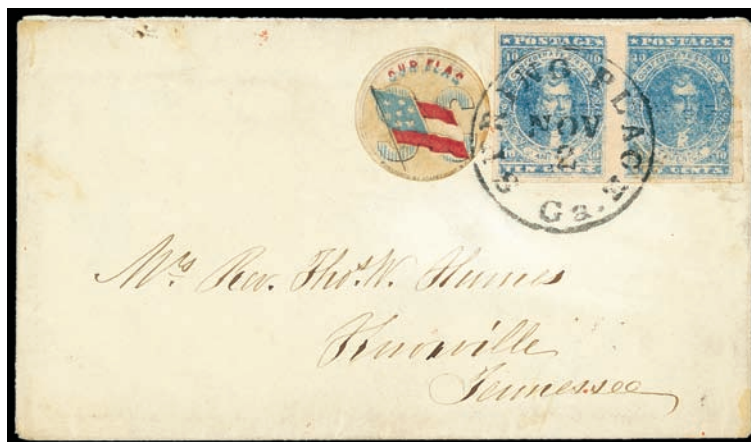 OUR FLAG
POSTAGE
10 10
CONFEDERATE STATES
10 10
TEN CENTS
POSTAGE
10 10
10 10
CENTS
SPRING PLACE
NOV
2
Ga.
Mrs Rev. Thos. W. Humes
Knoxville
Tennessee